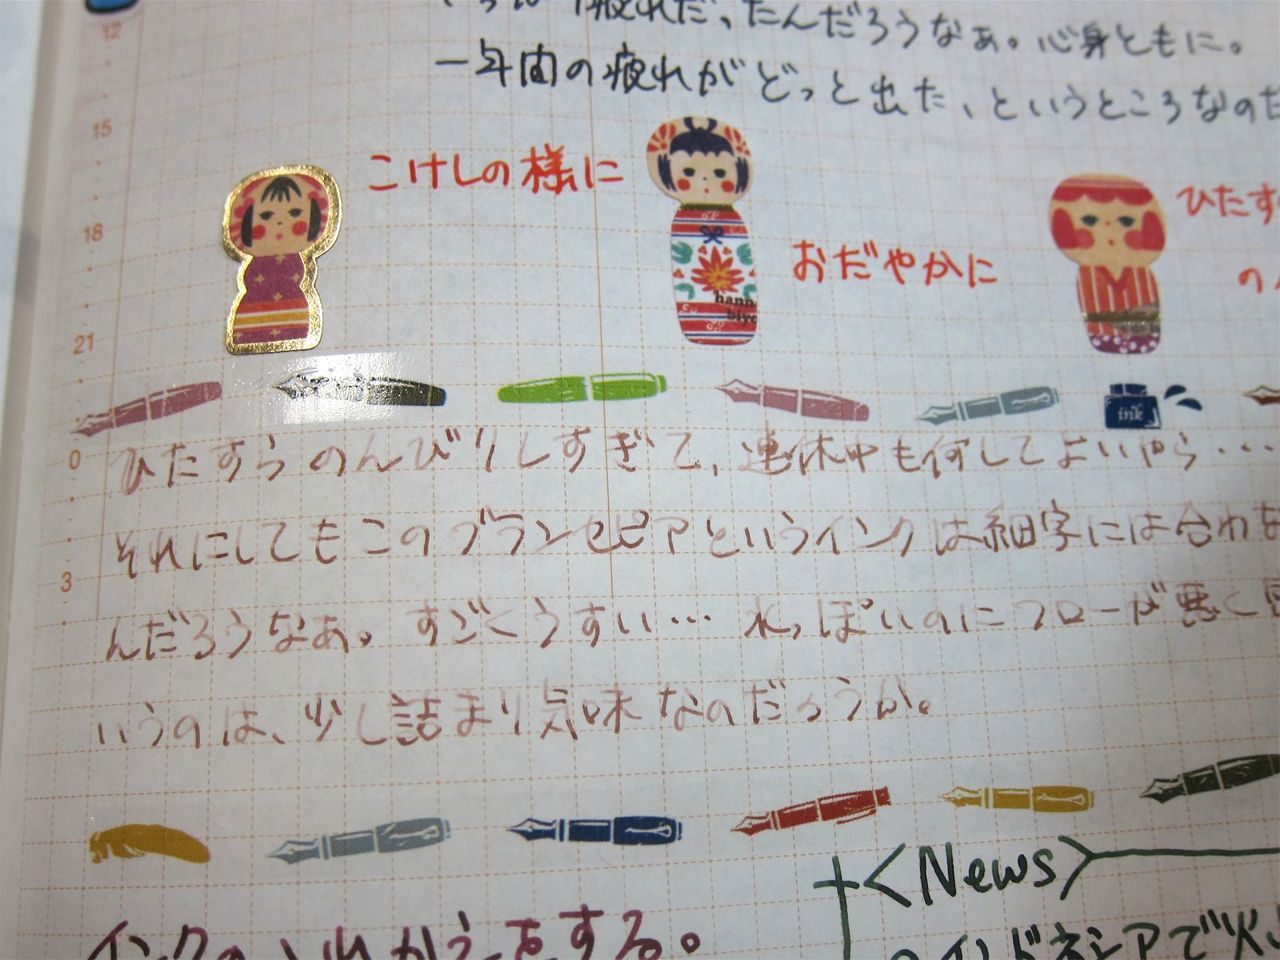 疲れだったんだろうなぁ。心身ともに。
一年間の疲れがどっと出た、というところなのだ
12
15
こけしの様に
ひたす
18
おだやかに
の
hann
biyo
21
ink
0
ひたすらのんびりしすぎて、連休中も何してよいやら・・・
それにしてもこのブランセピアというインクは細字には合わな
3
んだろうなぁ。すごくうすい… 水っぽいのにフローが悪く
いうのは、少し詰まり気味なのだろうか。
<News>
インクの入れかえをする。
インドネシアで火